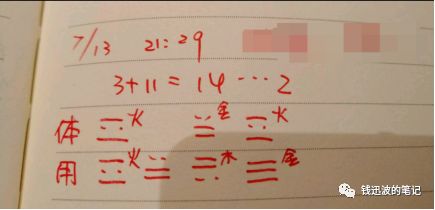 7/13 21:29
3+11=14…2
体 ☲火 ☱金 ☲火
用 ☲火 ☱ ☴木 ☰金
钱迅波的笔记